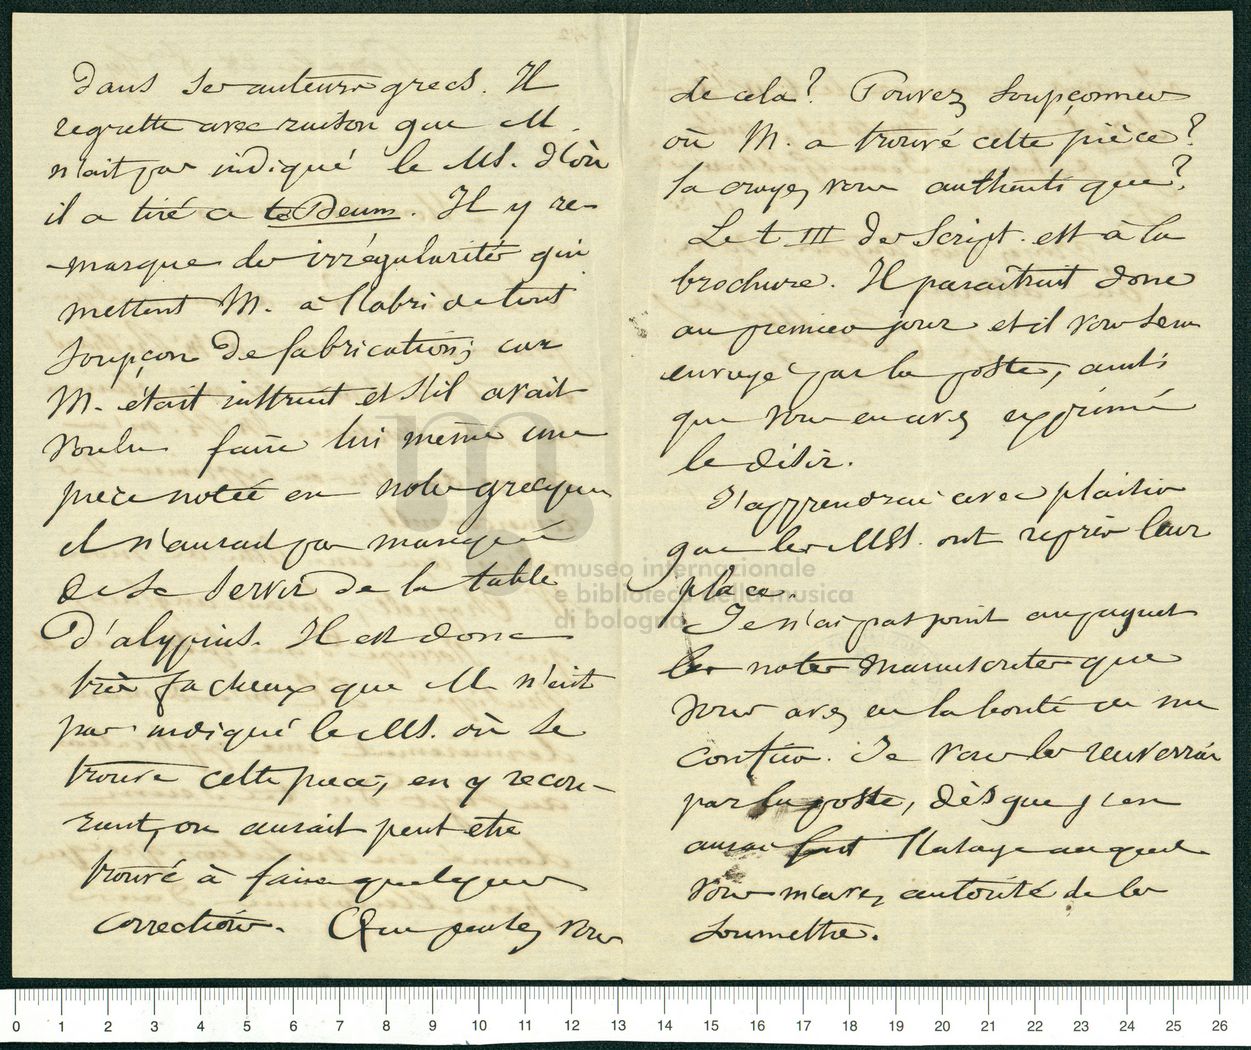 dans ses auteurs grecs. Il
regrette avec raison que M.
n'ait pas indiqué le MS. d'où
il a tiré ce te Deum. Il y re-
marque des irrégularités qui
mettent M. à l'abri de tout
soupçon de fabrication; car
M. était instruit et s'il avait
voulu faire lui même une
pièce notée en notes grecques
il n'aurait pas manqué
de se servir de la table
d'alypius. Il est donc
très facheux que M. n'ait
pas indiqué le MS. où se
trouve cette pièce, en y recou-
rant, on aurait peut etre
trouvé à faire quelques
corrections. Que pensez vous
de cela? Pouvez soupçonner
où M. a trouvé cette pièce?
la croyez vous authentique?
Le t III des Script. est à la
brochure. Il paraîtrait donc
au premier jour et il vous sera
envoyé par la poste, ainsi
que vous en avez exprimé
le désir.
J'apprendrai avec plaisir
que les MSS. ont repris leur
place.
Je n'ai pas joint au paquet
les notes manuscrites que
vous avez eu la bonté de me
confier. Je vous les renverrai
par la poste, dès que j'en
aurai fait l'usage auquel
vous m'avez autorisé de les
soumettre.
museo internazionale
e biblioteca della musica
di bologna
0 1 2 3 4 5 6 7 8 9 10 11 12 13 14 15 16 17 18 19 20 21 22 23 24 25 26